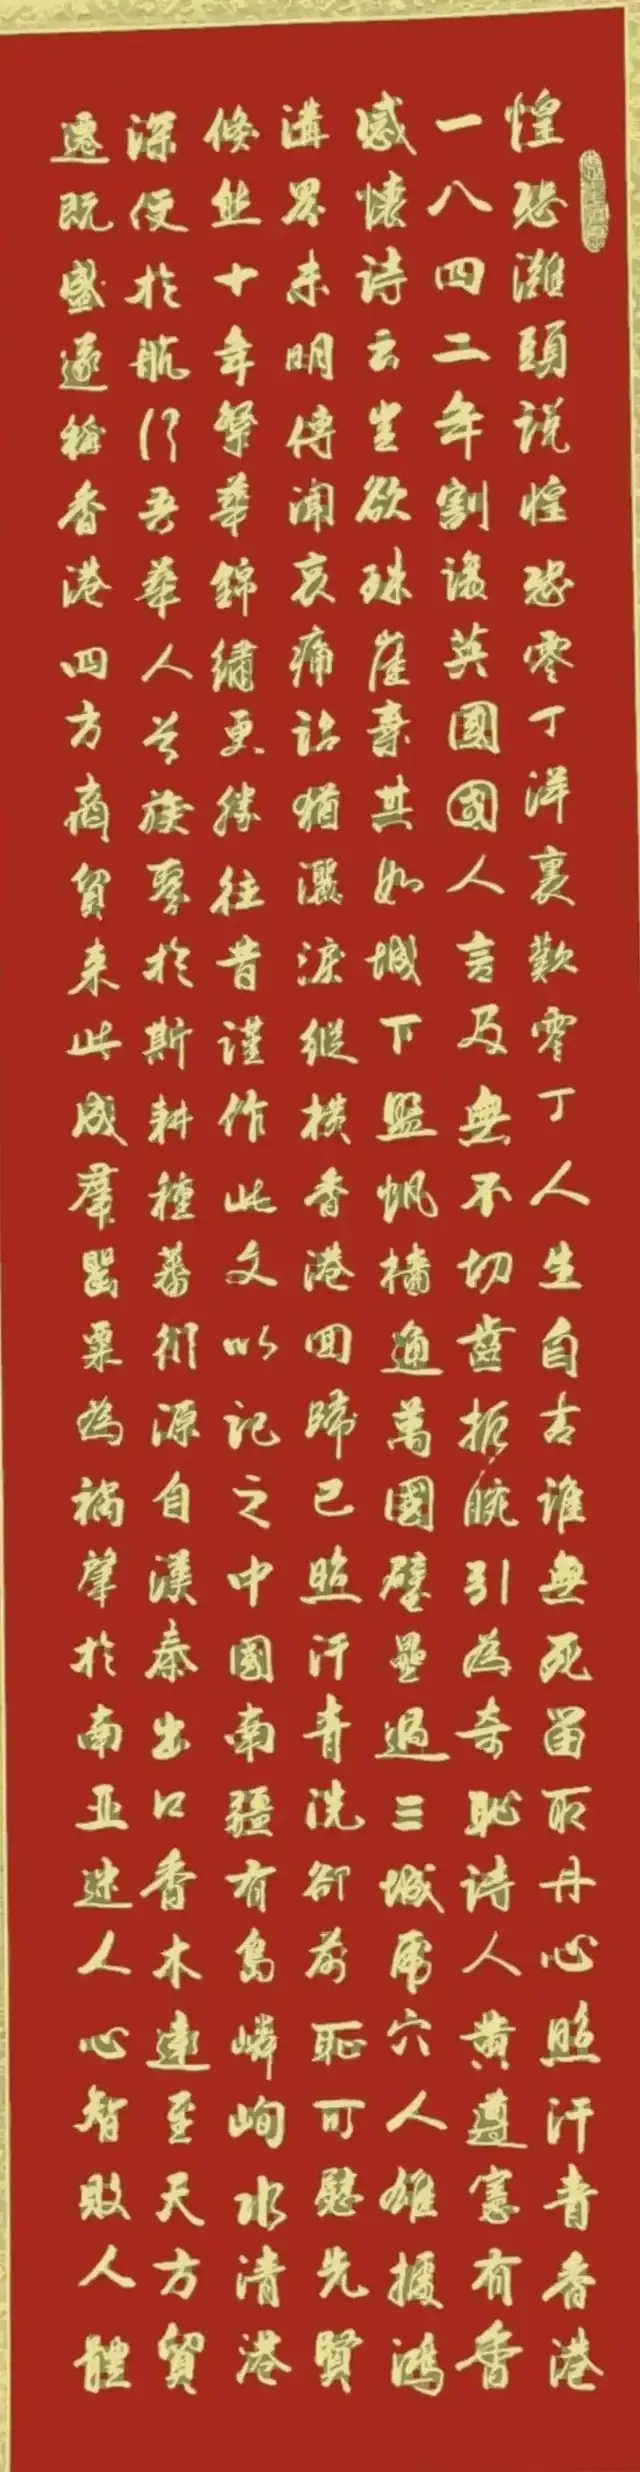 惶恐灘頭說惶恐零丁洋裏歎零丁人生自古誰無死留取丹心照汗青香港
一八四二年割讓英國國人言及無不切齒扼腕引為奇恥詩人黃遵憲有香
感懷詩云豈欲珠崖棄其如城下盟帆檣通萬國壁壘逼三城虎穴人雄據鴻
溝界未明傳聞哀痛詔猶灑淚縱橫香港回歸已照汗青洗卻前恥可慰先賢
倏然十年繁華錦繡更勝往昔謹作此文以記之中國南疆有島嶙峋水清港
深便於航行吾華人氏族聚於斯耕種蕃衍源自漢秦出口香木遠至天方貿
遷既盛遂稱香港四方商貿來此成羣罌粟為禍肇於南亞迷人心智敗人體